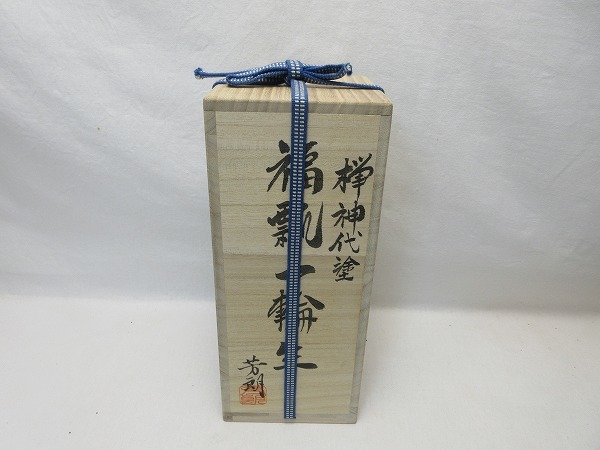 欅神代塗
福瓢一輪生
芳朗